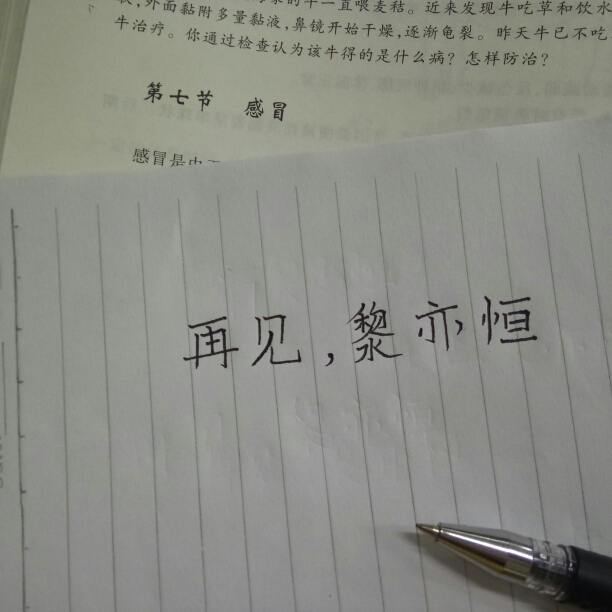 外面黏附多量黏液,鼻镜开始干燥,逐渐龟裂。昨天牛已不吃
牛一直喂麦秸。近来发现牛吃草和饮水
牛治疗。你通过检查认为该牛得的是什么病?怎样防治?
第七节 感冒
感冒是由
再见,黎亦恒